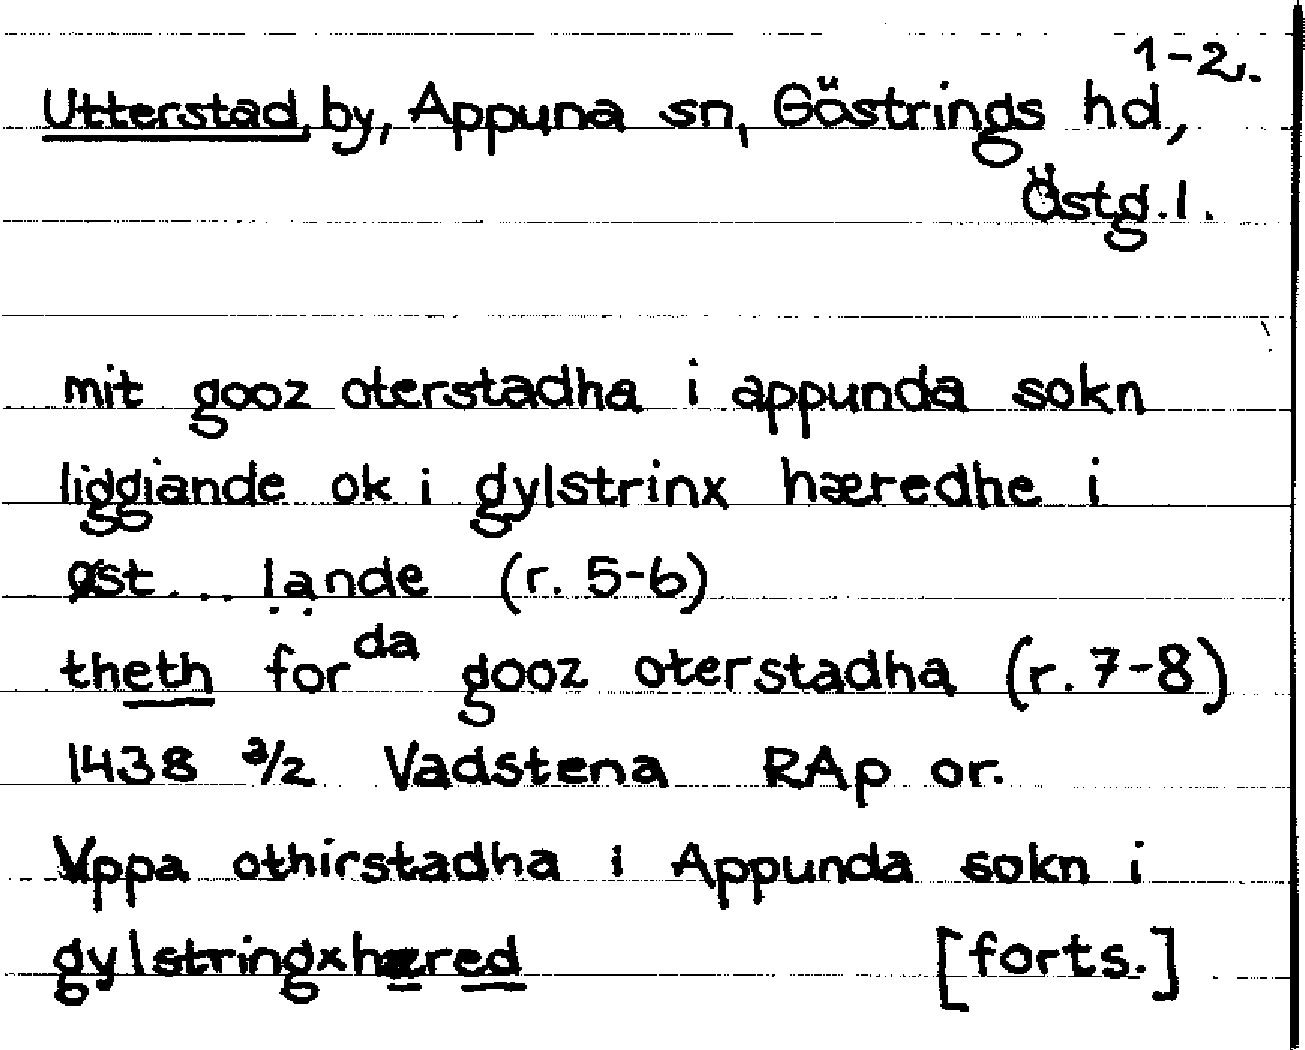 1-2.
Utterstad, by, Appuna sn, Göstrings hd,
Östg.l.
mit gooz oterstadha i appunda sokn
liggiande ok i gylstrinx hæredhe i
øst... lande (r. 5-6)
theth forda gooz oterstadha (r. 7-8)
1438 2/2 Vadstena RAp or.
Vppa othirstadha i Appunda sokn i
gylstringxhæred [forts.]